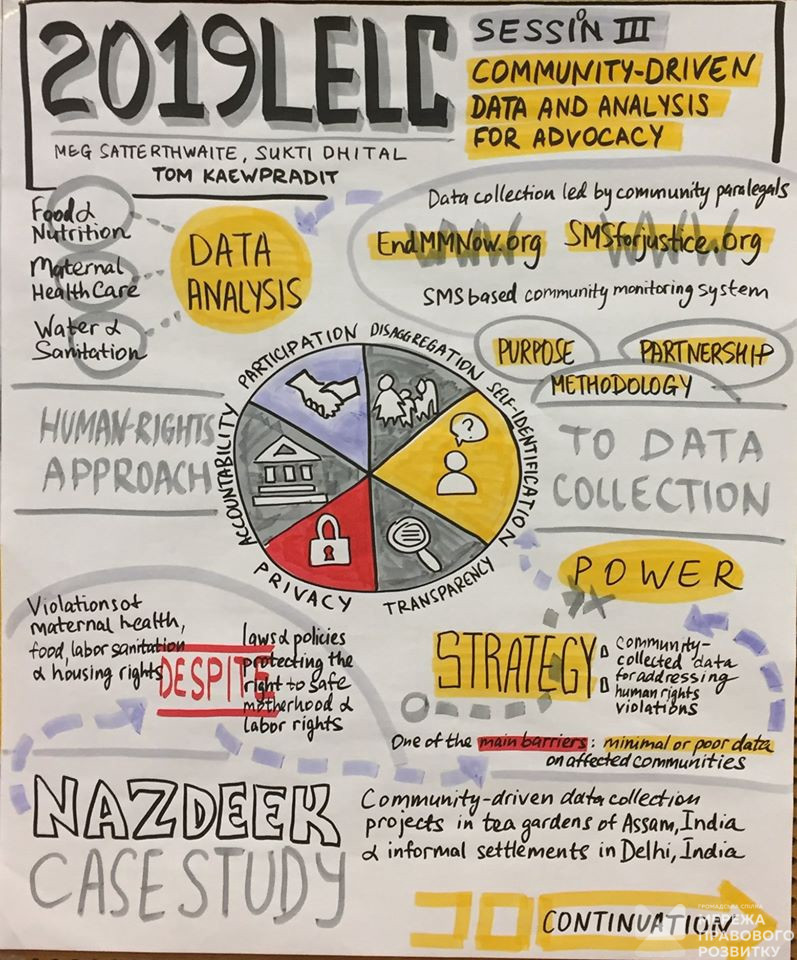 2019LELC
SESSIN III
COMMUNITY-DRIVEN
DATA AND ANALYSIS
FOR ADVOCACY
MEG SATTERTHWAITE, SUKTI DHITAL
TOM KAEWPRADIT
Food &
Nutrition
Maternal
Health Care
Water &
Sanitation
DATA
ANALYSIS
Data collection led by community paralegals
WWW
EndMMNow.org
WWW
SMSforjustice.org
SMS based community monitoring system
PURPOSE
PARTNERSHIP
METHODOLOGY
HUMAN-RIGHTS
APPROACH
TO DATA
COLLECTION
PARTICIPATION
DISAGGREGATION
SELF-IDENTIFICATION
TRANSPARENCY
PRIVACY
ACCOUNTABILITY
?
POWER
Violations of
maternal health,
food, labor sanitation
& housing rights
DESPITE
laws & policies
protecting the
right to safe
motherhood &
labor rights
STRATEGY:
community-
collected data
for addressing
human rights
violations
One of the main barriers: minimal or poor data
on affected communities
NAZDEEK
CASE STUDY
Community-driven data collection
projects in tea gardens of Assam, India
& informal settlements in Delhi, India
CONTINUATION
ГРОМАДСЬКА СПІЛКА
МЕРЕЖА
ПРАВОВОГО
РОЗВИТКУ